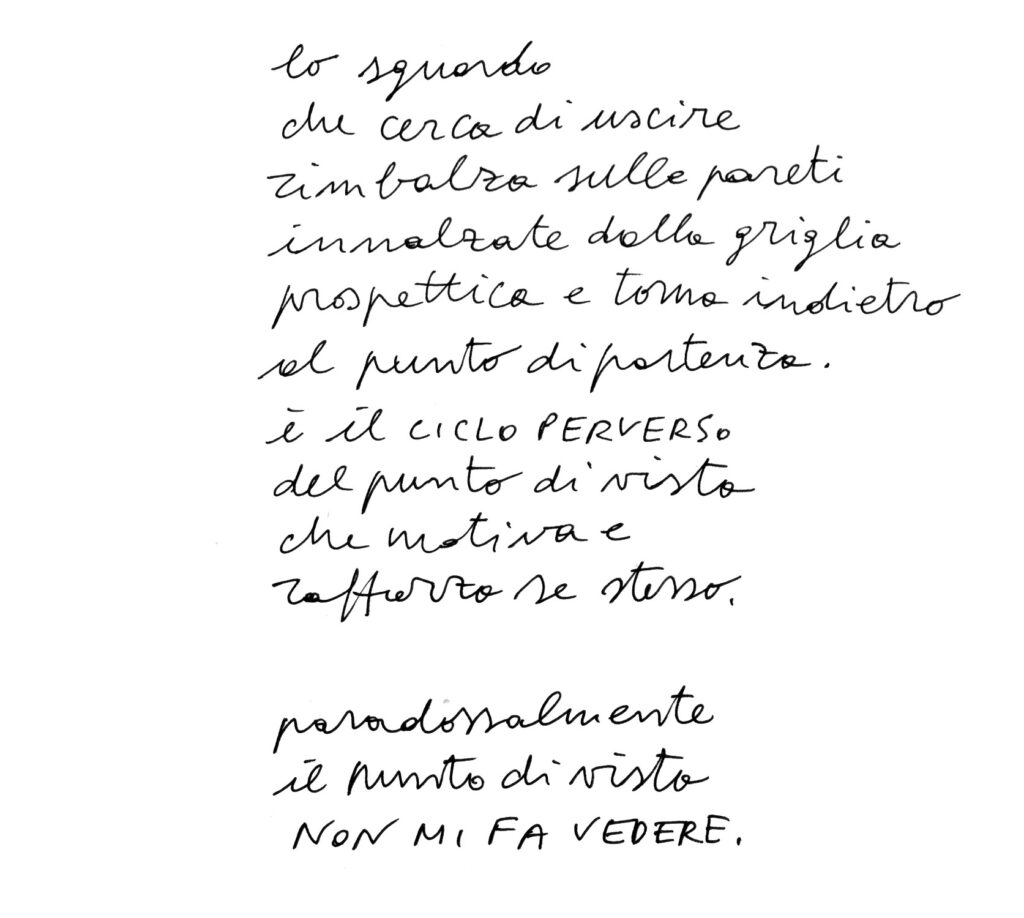 lo sguardo
che cerca di uscire
rimbalza sulle pareti
innalzate dalla griglia
prospettica e torna indietro
al punto di partenza.
è il CICLO PERVERSO
del punto di vista
che motiva e
rafforza se stesso.
paradossalmente
il punto di vista
NON MI FA VEDERE.